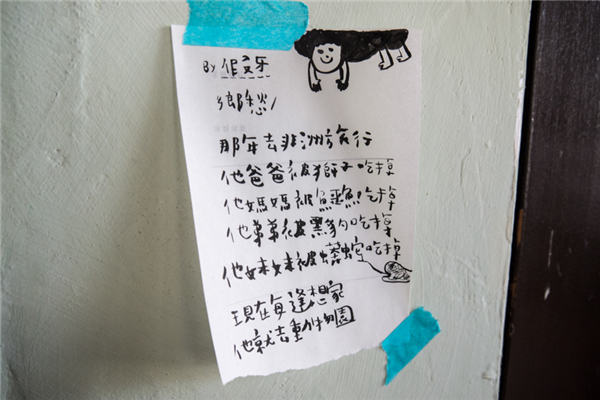 By
鄉愁
那年去非洲旅行
他爸爸被獅子吃掉
他媽媽被鱷魚吃掉
他弟弟被黑豹吃掉
他妹妹被蟒蛇吃掉
現在每逢想家
他就去動物園